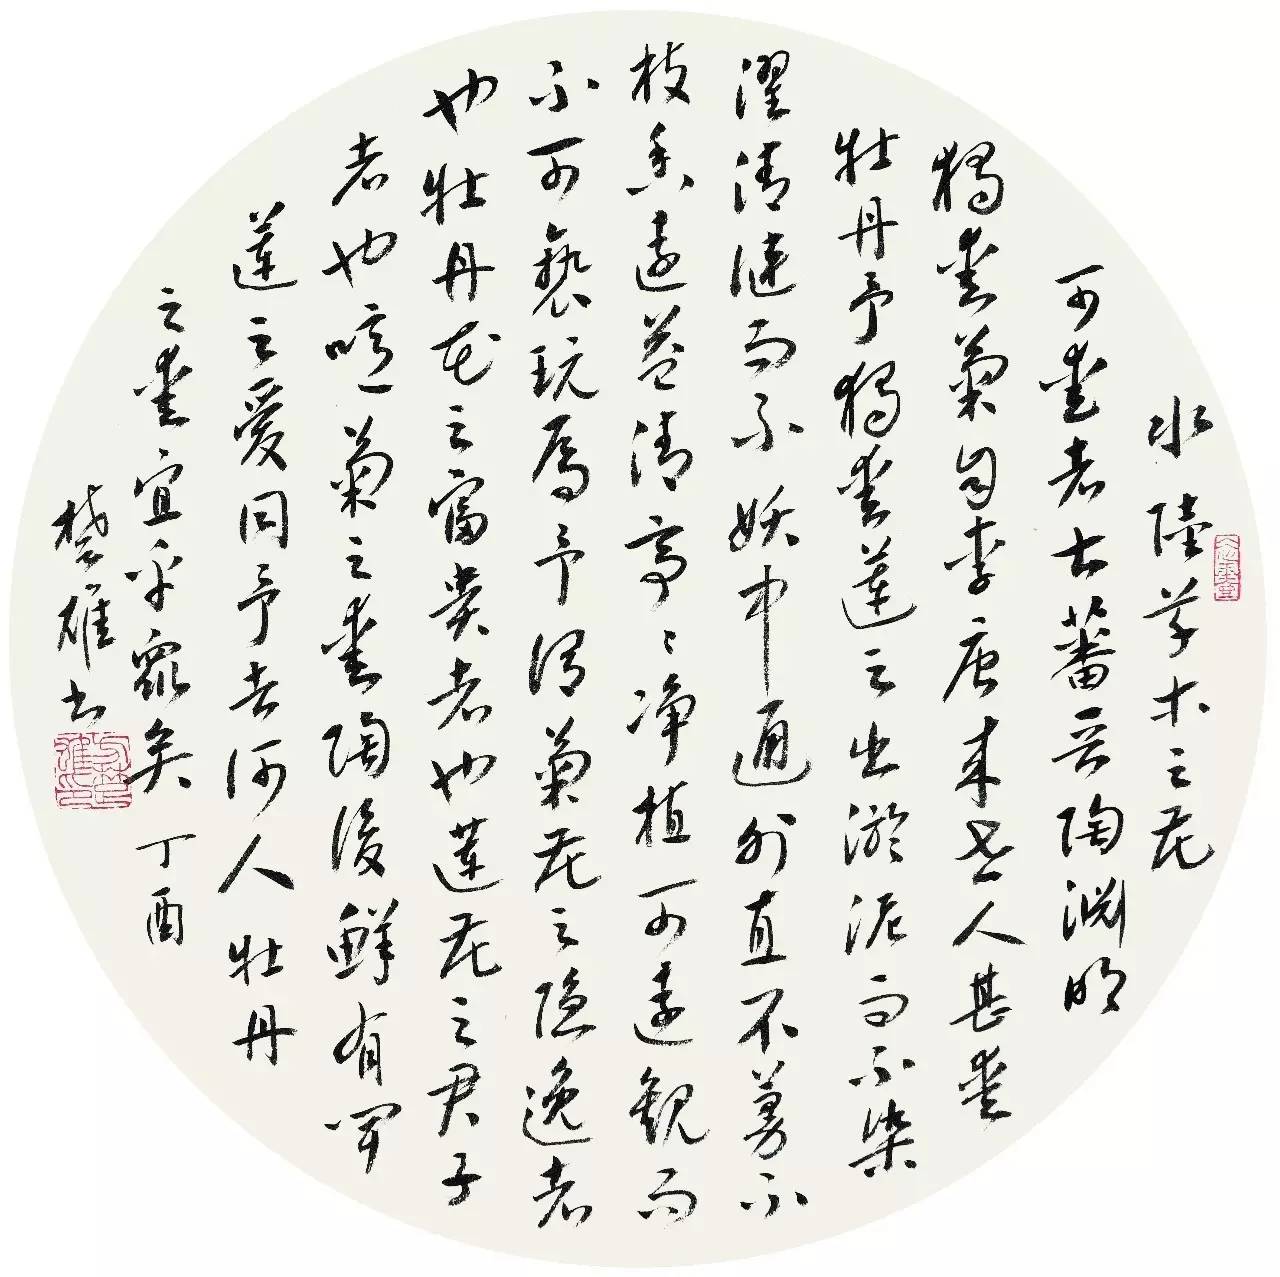 水陸草木之花
可愛者甚蕃晋陶淵明
獨愛菊自李唐来世人甚愛
牡丹予獨愛蓮之出淤泥而不染
濯清漣而不妖中通外直不蔓不
枝香遠益清亭々净植可遠觀而
不可褻玩焉予謂菊花之隐逸者
也牡丹花之富貴者也蓮花之君子
者也噫菊之愛陶後鮮有聞
蓮之愛同予者何人牡丹
之愛宜乎眾矣 丁酉
楚雄书
方楚雄印